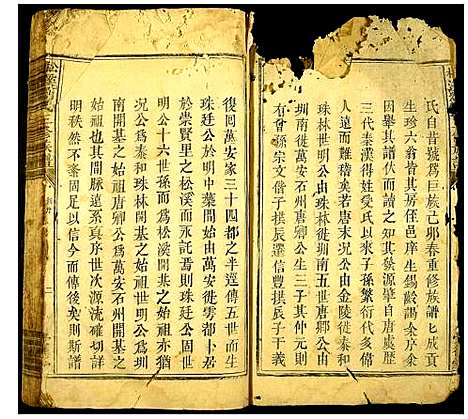 氏自昔號爲巨族己卯春重修族譜匕成貢
生珍六翁偕其房侄邑庠生錫齡謁余序余
因舉其譜伏而讀之而知其發源華胄
三代秦漢得姓受氏以來子孫繁衍代多偉
人遠而難稽矣若唐末況公由金陵徙泰和
珠林世明公由珠林徙圳南五世唐卿公由
圳南徙萬安石州唐卿公生三子其仲元則
有曾孫宗文偕子拱辰遊豐拱辰子千義
復回萬安家三十四都之半逕傳五世而生
珠廷公於明中葉開始由萬安徙雩都卜居
於崇賢里之松溪而永託焉則珠廷公固世
明公十六世孫而爲松溪開基之始祖亦猶
況公爲泰和珠林開基之始祖世明公爲圳
南開基之始祖唐卿公爲萬安石州開基之
始祖也其間脈遠系眞世次源流確切註
明秩然不紊固足以信今而傳後矣則斯譜